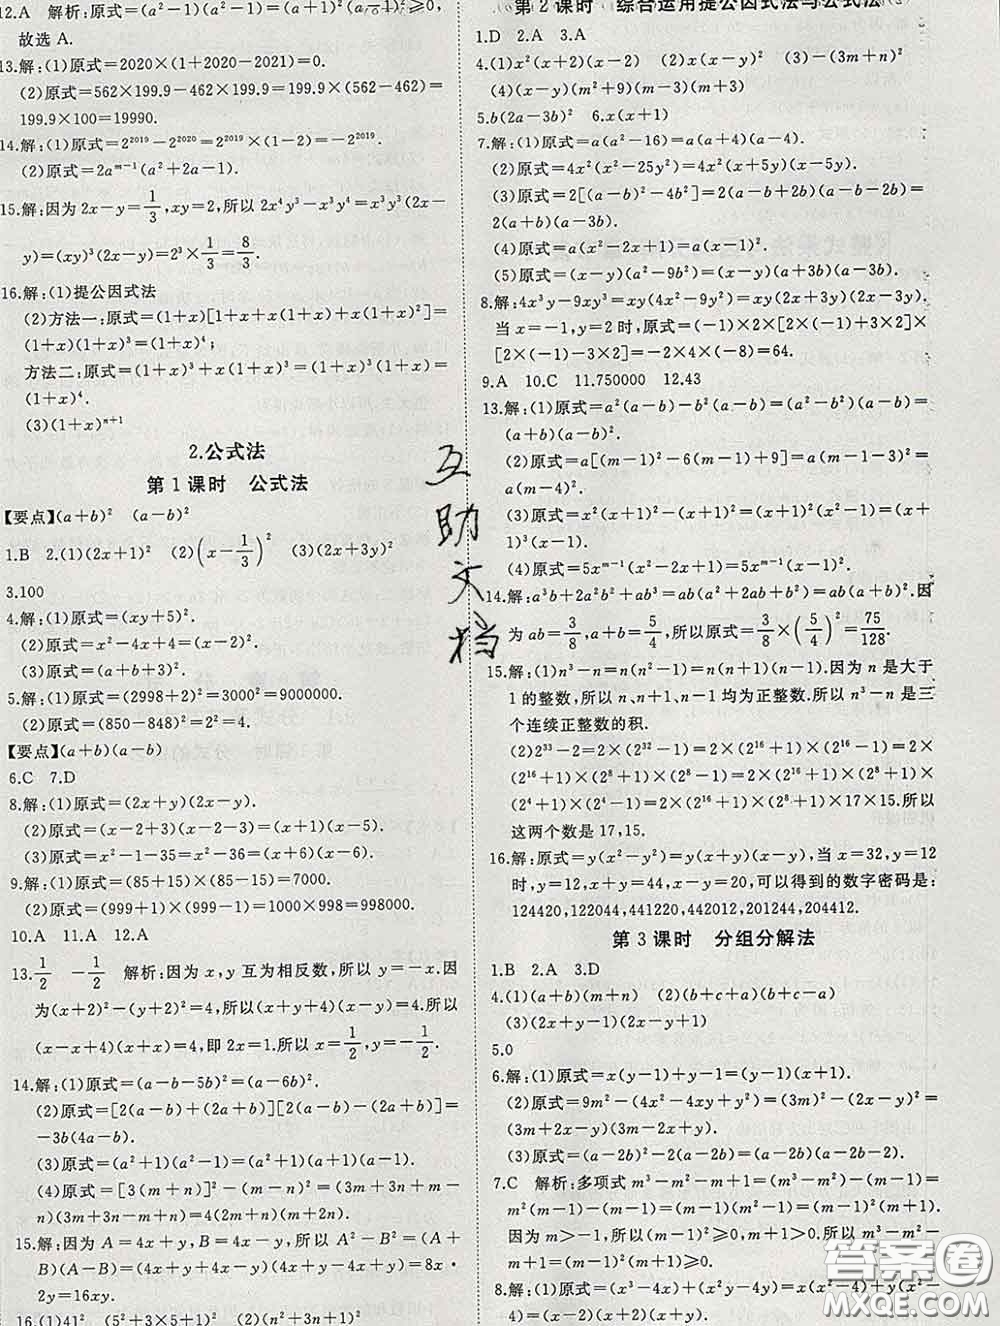 12.A 解析:原式=(a²-1)(a²-1)=(a+1)²(a-1)²≥0,
故选 A.
13.解:(1)原式=2020×(1+2020-2021)=0.
(2)原式=562×199.9-462×199.9=199.9×(562-462)=
199.9×100=19990.
14.解:(1)原式=2²⁰¹⁹-2²⁰²⁰=2²⁰¹⁹×(1-2)=-2²⁰¹⁹.
(2)原式=2aᵐ⁻¹(a²+2a-1).
15.解:因为 2x-y=1/3,xy=2,所以 2x⁴y³-x³y⁴=x³y³(2x-
y)=(xy)³(2x-y)=2³×1/3=8/3.
16.解:(1)提公因式法
(2)方法一:原式=(1+x)[1+x+x(1+x)+x(1+x)²]=
(1+x)(1+x)³=(1+x)⁴;
方法二:原式=(1+x)³+x(1+x)³=(1+x)³(1+x)=
(1+x)⁴.
(3)(1+x)ⁿ⁺¹
2.公式法
第1课时 公式法
【要点】(a+b)² (a-b)²
1.B 2.(1)(2x+1)² (2)(x-1/3)² (3)(2x+3y)²
3.100
4.解:(1)原式=(xy+5)².
(2)原式=x²-4x+4=(x-2)².
(3)原式=(a+b)².
5.解:(1)原式=(2998+2)²=3000²=9000000.
(2)原式=(850-848)²=2²=4.
【要点】(a+b)(a-b)
6.C 7.D
8.解:(1)原式=(2x+y)(2x-y).
(2)原式=(x-2+3)(x-2-3)=(x+1)(x-5).
(3)原式=x²-1-35=x²-36=(x+6)(x-6).
9.解:(1)原式=(85+15)×(85-15)=7000.
(2)原式=(999+1)×(999-1)=1000×998=998000.
10.A 11.A 12.A
13.1/2 -1/2 解析:因为 x,y 互为相反数,所以 y=-x.因
为(x+2)²-(y+2)²=4,所以(x+y+4)(x-y)=4.所以
(x-x+4)(x+x)=4,即 2x=1.所以 x=1/2,y=-1/2.
14.解:(1)原式=(a-b-5b)²=(a-6b)².
(2)原式=[2(a-b)+(2a+b)][2(a-b)-(2a+b)]=
-3b(4a-b).
(3)原式=(a²+1)(a²-1)=(a²+1)(a+1)(a-1).
(4)原式=[3(m+n)]²-(m-n)²=(3m+3n+m-
n)(3m+3n-m+n)=4(2m+n)(m+2n).
15.解:因为 A=4x+y,B=4x-y,所以 A²-B²=(A+
B)(A-B)=(4x+y+4x-y)(4x+y-4x+y)=8x·
2y=16xy.
16.(1)41² (5²+3×5+1)² (2)(n²+3n+1)²
第2课时 综合运用提公因式法与公式法
1.D 2.A 3.A
4.(1)x²(x+2)(x-2) (2)x(x-y)² (3)-(3m+n)²
(4)(x-y)(m²+9)(m-3)(m+3)
5.b(2a-3b)² 6.x(x+1)
7.解:(1)原式=a(a²-16)=a(a+4)(a-4).
(2)原式=4x²(x²-25y²)=4x²(x+5y)(x-5y).
(3)原式=2[(a-b)²-4b²]=2(a-b+2b)(a-b-2b)=
2(a+b)(a-3b).
(4)原式=a(x²-2x+1)=a(x-1)².
(5)原式=(x-y)(a²-9b²)=(x-y)(a+3b)(a-3b).
8.解:4x³y-9xy³=xy(4x²-9y²)=xy(2x+3y)(2x-3y).
当 x=-1,y=2 时,原式=(-1)×2×[2×(-1)+3×2]×
[2×(-1)-3×2]=-2×4×(-8)=64.
9.A 10.C 11.750000 12.43
13.解:(1)原式=a²(a-b)-b²(a-b)=(a²-b²)(a-b)=
(a+b)(a-b)².
(2)原式=a[(m-1)²-6(m-1)+9]=a(m-1-3)²=
a(m-4)².
(3)原式=x²(x+1)²-(x+1)²=(x+1)²(x²-1)=(x+
1)³(x-1).
(4)原式=5xᵐ⁻¹(x²-2x+1)=5xᵐ⁻¹(x-1)².
14.解:a³b+2a²b²+ab³=ab(a²+2ab+b²)=ab(a+b)².因
为 ab=3/8,a+b=5/4,所以原式=3/8×(5/4)²=75/128.
15.解:(1)n³-n=n(n²-1)=n(n+1)(n-1).因为 n 是大于
1 的整数,所以 n、n+1、n-1 均为正整数.所以 n³-n 是三
个连续正整数的积.
(2)2³³-2=2×(2³²-1)=2×(2¹⁶+1)×(2¹⁶-1)=2×
(2¹⁶+1)×(2⁸+1)×(2⁸-1)=2×(2¹⁶+1)×(2⁸+1)×
(2⁴+1)×(2⁴-1)=2×(2¹⁶+1)×(2⁸+1)×17×15.所以
这两个数是 17,15.
16.解:原式=y(x²-y²)=y(x+y)(x-y),当 x=32,y=12
时,y=12,x+y=44,x-y=20,可以得到的数字密码是:
124420,122044,441220,442012,201244,204412.
第3课时 分组分解法
1.B 2.A 3.D
4.(1)(a+b)(m+n) (2)(b+c+a)(b+c-a)
(3)(2x+y-1)(2x-y+1)
5.0
6.解:(1)原式=x(y-1)+y-1=(y-1)(x+1).
(2)原式=9m²-(4x²-4xy+y²)=(3m)²-(2x-y)²=
(3m+2x-y)(3m-2x+y).
(3)原式=(a-b)²-4=(a-b+2)(a-b-2).
7.C 解析:多项式 m³-m²-m+1=(m³-m²)-(m-1)=
m²(m-1)-(m-1)=(m-1)(m²-1)=(m-1)²(m+1).
因为 m>-1,所以(m-1)²≥0,m+1>0.所以 m³-m²-
m+1=(m-1)²(m+1)≥0.
8.解:(1)原式=(x³-4x)+(x²y-4y)=x(x²-4)+y(x²-
4)=(x-2)(x+2)(x+y).
互助文档
答案圈
MXQE.COM